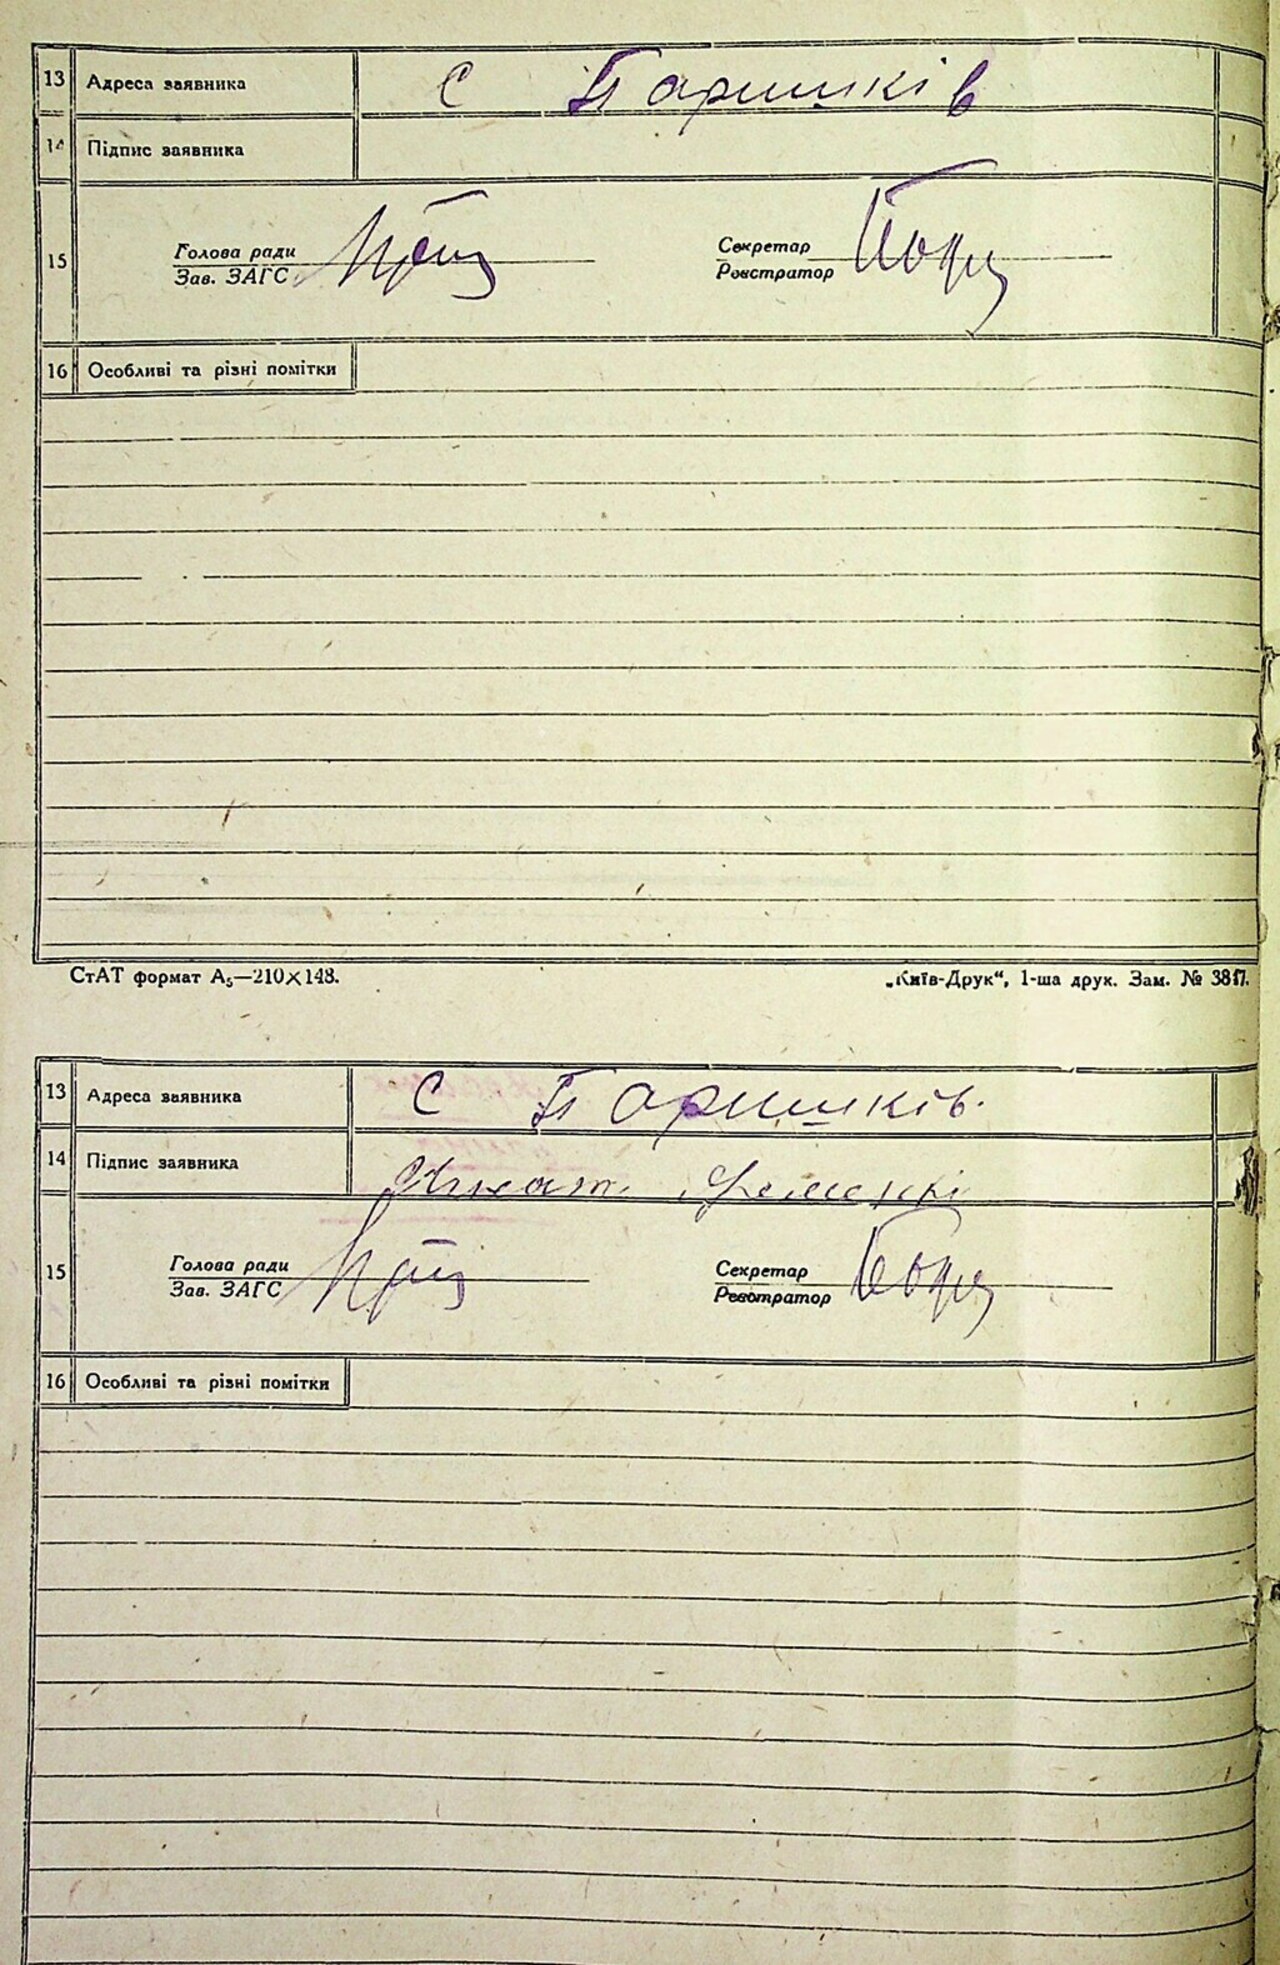 13 Адреса заявника с Паришків
14 Підпис заявника
15 Голова ради Секретар
Зав. ЗАГС Реєстратор
16 Особливі та різні помітки
СтАТ формат А₅—210×148. „Київ-Друк“, 1-ша друк. Зам. № 3817.
13 Адреса заявника с Паришків.
14 Підпис заявника
15 Голова ради Секретар
Зав. ЗАГС Реєстратор
16 Особливі та різні помітки